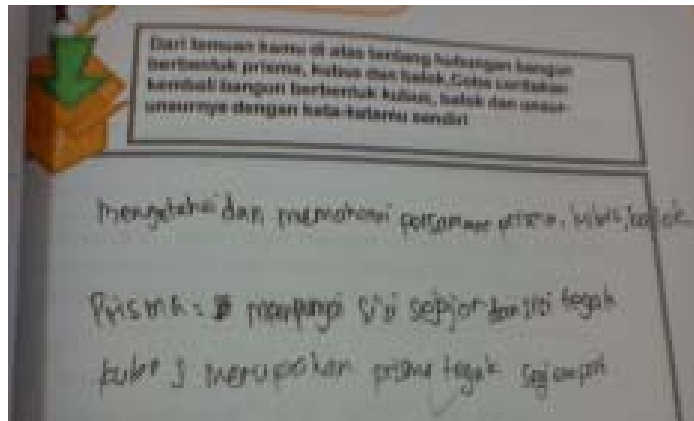 Dari temuan kamu di atas tentang hubungan bangun
berbentuk prisma, kubus dan balok. Coba ceritakan
kembali bangun berbentuk kubus, balok dan unsur-
unsurnya dengan kata-katamu sendiri
mengetahui dan memahami persamaan prisma, kubus, balok
Prisma = sisi sejajar dan sisi tegak
merupakan prisma tegak segiempat